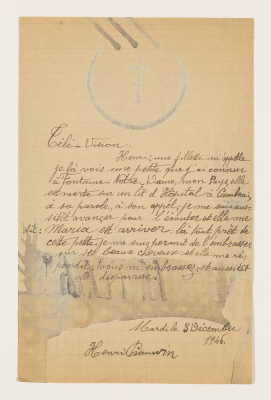 Télé-Vision
Henri; une fillette m'appelle
je la vois une petite que j'ai connue
à Fontaine Notre-Dame, mon Pays, elle
est morte sur un lit d'Hôpital à Cambrai,
à sa parole, à son appel, je me suis aus-
sitôt avancer pour l'écouter et elle me
dit: Maria est arriver là tout prêt de
cette petite je me suis permit de l'embrasser
sur ses beaux cheveux et elle me ré-
pondit: vous m'embrassez, et aussitôt
elle disparue.
Mardi le 3 Décembre
1946.
Henri